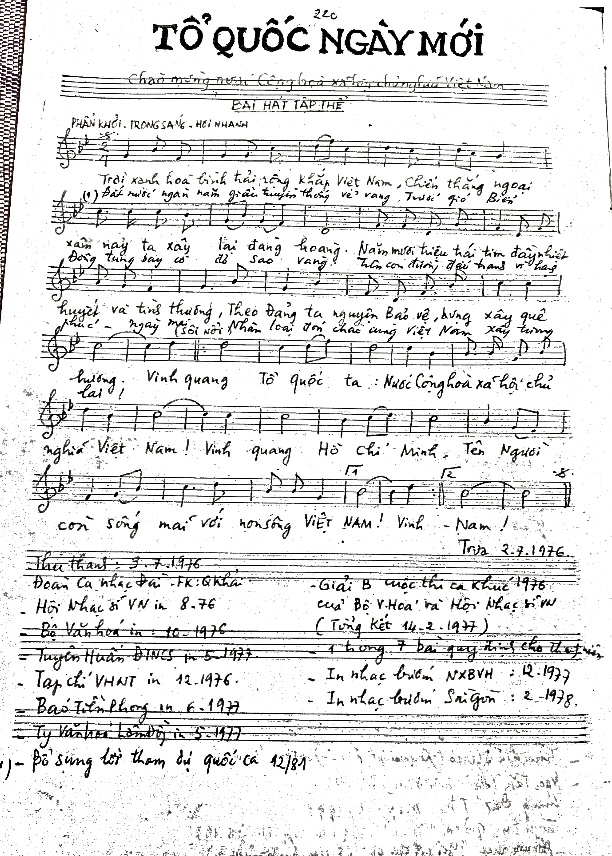 220
TỔ QUỐC NGÀY MỚI
Chào mừng nước Cộng hoà xã hội chủ nghĩa Việt Nam
BÀI HÁT TẬP THỂ
PHẤN KHỞI - TRONG SÁNG - HƠI NHANH
Trời xanh hoà bình trải rộng khắp Việt Nam, Chiến thắng ngoại
(*) Đất nước ngàn năm giầu truyền thống vẻ vang Trước gió Biển
xâm nay ta xây lại đàng hoàng. Năm mươi triệu trái tim đầy nhiệt
Đông tung bay cờ đỏ sao vàng. Trên con đường đấu tranh vì hạnh
huyết và tình thương, Theo Đảng ta nguyện Bảo vệ, dựng xây quê
phúc ngày mai Nhân loại đón chào cùng Việt Nam xây tương
hương. Vinh quang Tổ quốc ta: Nước Cộng hoà xã hội chủ
lai!
nghĩa Việt Nam! Vinh quang Hồ Chí Minh, Tên Người
còn sống mãi với non sông VIỆT NAM! Vinh - Nam!
Trưa 2.7.1976
Thu thanh: 3.7.1976
Đoàn Ca nhạc Đài
- Giải B cuộc thi ca khúc 1976
- Hội Nhạc sĩ VN in 8-76
của Bộ V.Hoá và Hội Nhạc sĩ VN
- Bộ Văn hoá in: 10-1976
(Tổng Kết 14-2-1977)
- Tuyên Huấn in 5-1977
- 1 trong 7 bài quy định cho
- Tạp chí VHNT in 12.1976.
- In nhạc bướm NXBVH: 12.1977
- Báo Tiền Phong in 6-1977
- In nhạc bướm Sài Gòn: 2-1978.
- Ty Văn hoá Lâm Đồng in 5-1977
- Bổ sung lời tham dự quốc ca 12/81